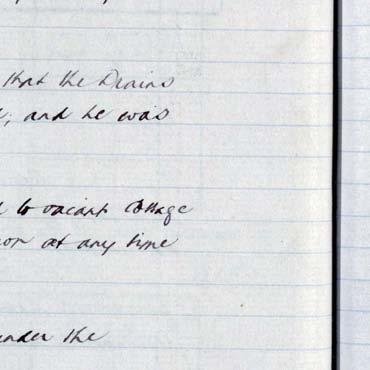 that the Drains
; and he was
to vacant Cottage
at any time
under the